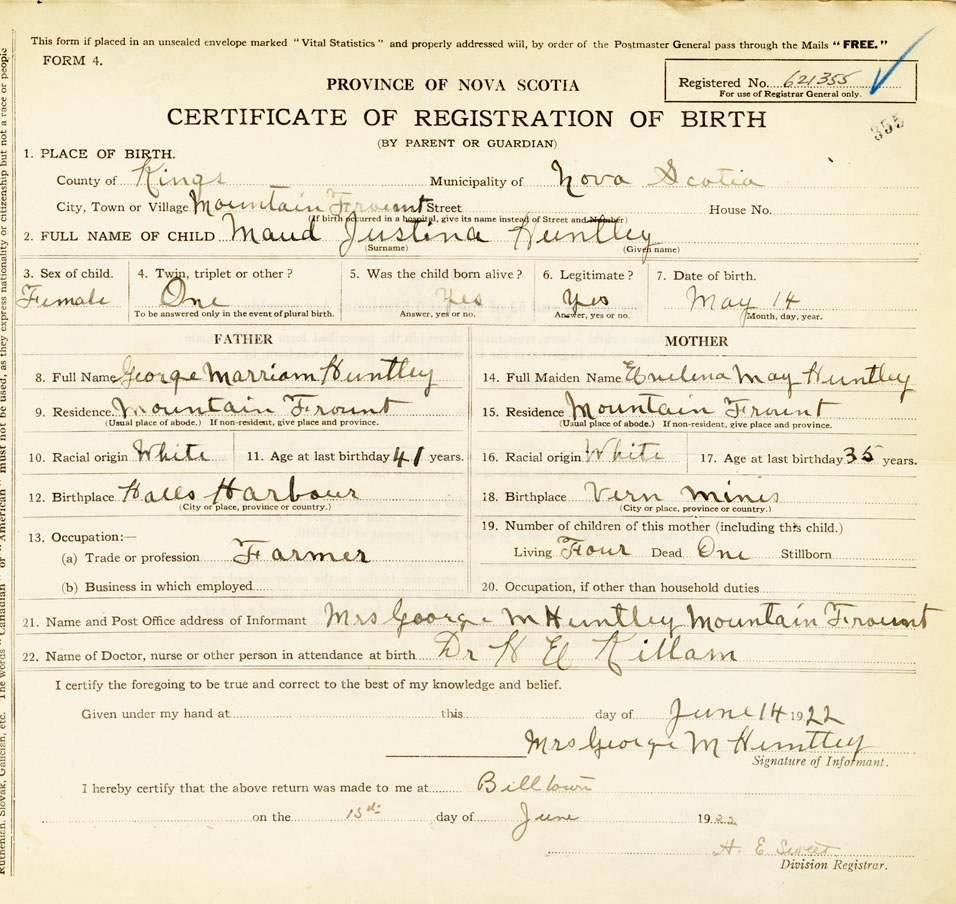 This form if placed in an unsealed envelope marked "Vital Statistics" and properly addressed will, by order of the Postmaster General pass through the Mails "FREE."
FORM 4.
Registered No. 621355
For use of Registrar General only.
355
PROVINCE OF NOVA SCOTIA
CERTIFICATE OF REGISTRATION OF BIRTH
(BY PARENT OR GUARDIAN)
1. PLACE OF BIRTH.
County of Kings Municipality of Nova Scotia
City, Town or Village Mountain Frount Street House No.
(If birth occurred in a hospital, give its name instead of Street and Number)
2. FULL NAME OF CHILD Maud Justina Huntley
(Surname) (Given name)
3. Sex of child. 4. Twin, triplet or other? 5. Was the child born alive? 6. Legitimate? 7. Date of birth.
Female One Yes Yes May 14
To be answered only in the event of plural birth. Answer, yes or no. Answer, yes or no. Month, day, year.
FATHER MOTHER
8. Full Name George Marriam Huntley 14. Full Maiden Name Evelena May Huntley
9. Residence Mountain Frount 15. Residence Mountain Frount
(Usual place of abode.) If non-resident, give place and province. (Usual place of abode.) If non-resident, give place and province.
10. Racial origin White 11. Age at last birthday 41 years. 16. Racial origin White 17. Age at last birthday 35 years.
12. Birthplace Halls Harbour 18. Birthplace Vern mines
(City or place, province or country.) (City or place, province or country.)
13. Occupation:— 19. Number of children of this mother (including this child.)
(a) Trade or profession Farmer Living Four Dead One Stillborn
(b) Business in which employed 20. Occupation, if other than household duties
21. Name and Post Office address of Informant Mrs George M Huntley Mountain Frount
22. Name of Doctor, nurse or other person in attendance at birth Dr H E Killam
I certify the foregoing to be true and correct to the best of my knowledge and belief.
Given under my hand at this day of June 14 1922
Mrs George M Huntley
Signature of Informant.
I hereby certify that the above return was made to me at Billtown
on the 15th day of June 1922
H. E Sweet
Division Registrar.
Ruthenian, Slovak, Galician, etc. The words "Canadian" or "American" must not be used, as they express nationality or citizenship but not a race or people